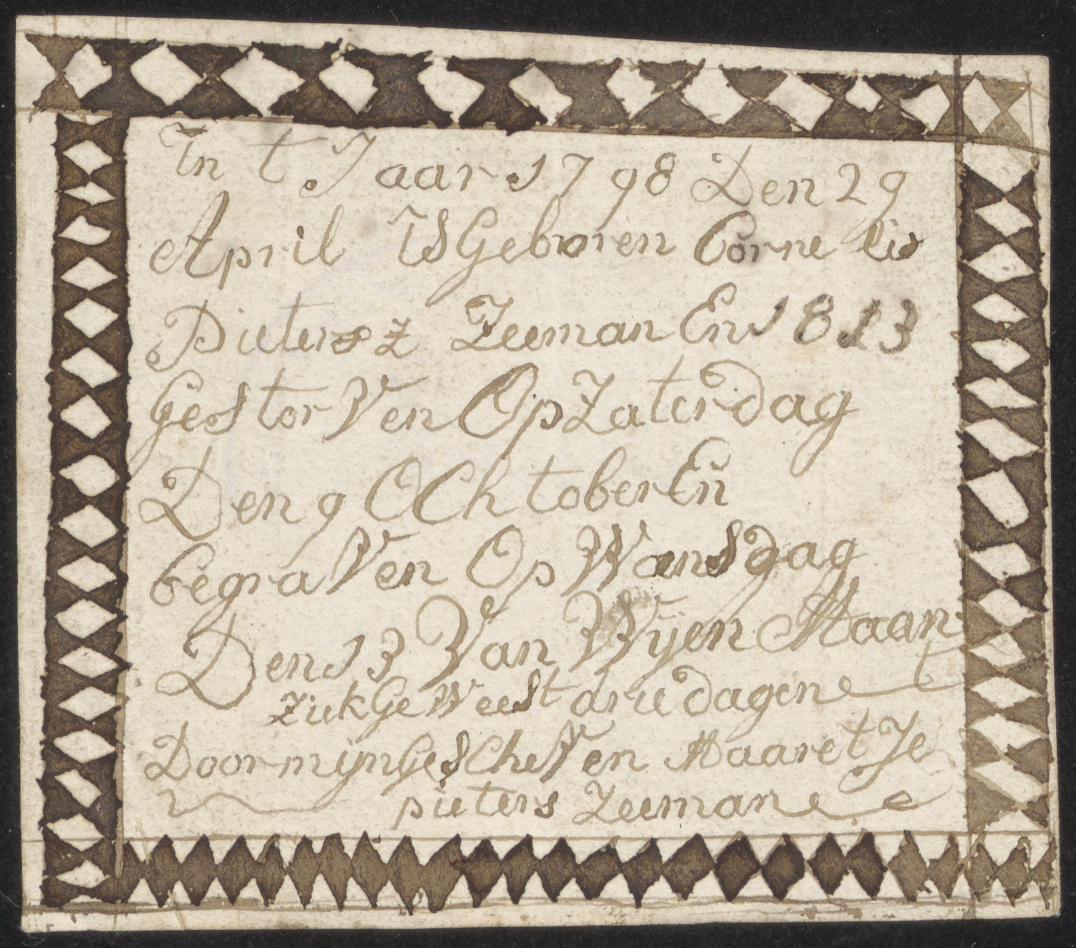 In t Jaar 1798 Den 29
April ISGeboren Corne lis
Pietersz Zeeman En 1813
GestorVen OpZaterdag
Den 9 OChtoberEn
begraVen Op Wansdag
Den 13 Van Wijen Maan
ZiekGeWeest drie dagen
DoormijnGeScheVen MaaretJe
pieters Zeeman